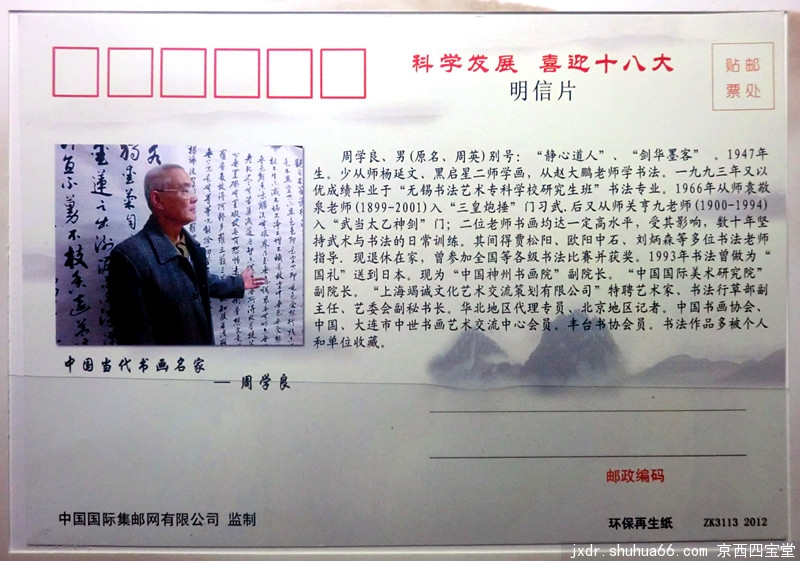 科学发展 喜迎十八大
明信片
贴邮
票处
周学良、男(原名、周英)别号：“静心道人”、“剑华墨客”。1947年
生。少从师杨延文、黑启星二师学画，从赵大鹏老师学书法。一九九三年又以
优成绩毕业于“无锡书法艺术专科学校研究生班”书法专业。1966年从师袁敬
泉老师(1899-2001)入“三皇炮捶”门习武.后又从师关亨九老师(1900-1994)
入“武当太乙神剑”门；二位老师书画均达一定高水平，受其影响，数十年坚
持武术与书法的日常训练。其间得贾松阳、欧阳中石、刘炳森等多位书法老师
指导.现退休在家，曾参加全国等各级书法比赛并获奖。1993年书法曾做为“
国礼”送到日本。现为“中国神州书画院”副院长。“中国国际美术研究院”
副院长。“上海竭诚文化艺术交流策划有限公司”特聘艺术家、书法行草部副
主任、艺委会副秘书长。华北地区代理专员、北京地区记者。中国书画协会、
中国、大连市中世书画艺术交流中心会员。丰台书协会员。书法作品多被个人
和单位收藏。
中国当代书画名家
— 周学良
邮政编码
中国国际集邮网有限公司 监制
环保再生纸 ZK3113 2012
jxdr.shuhua66.com 京西四宝堂